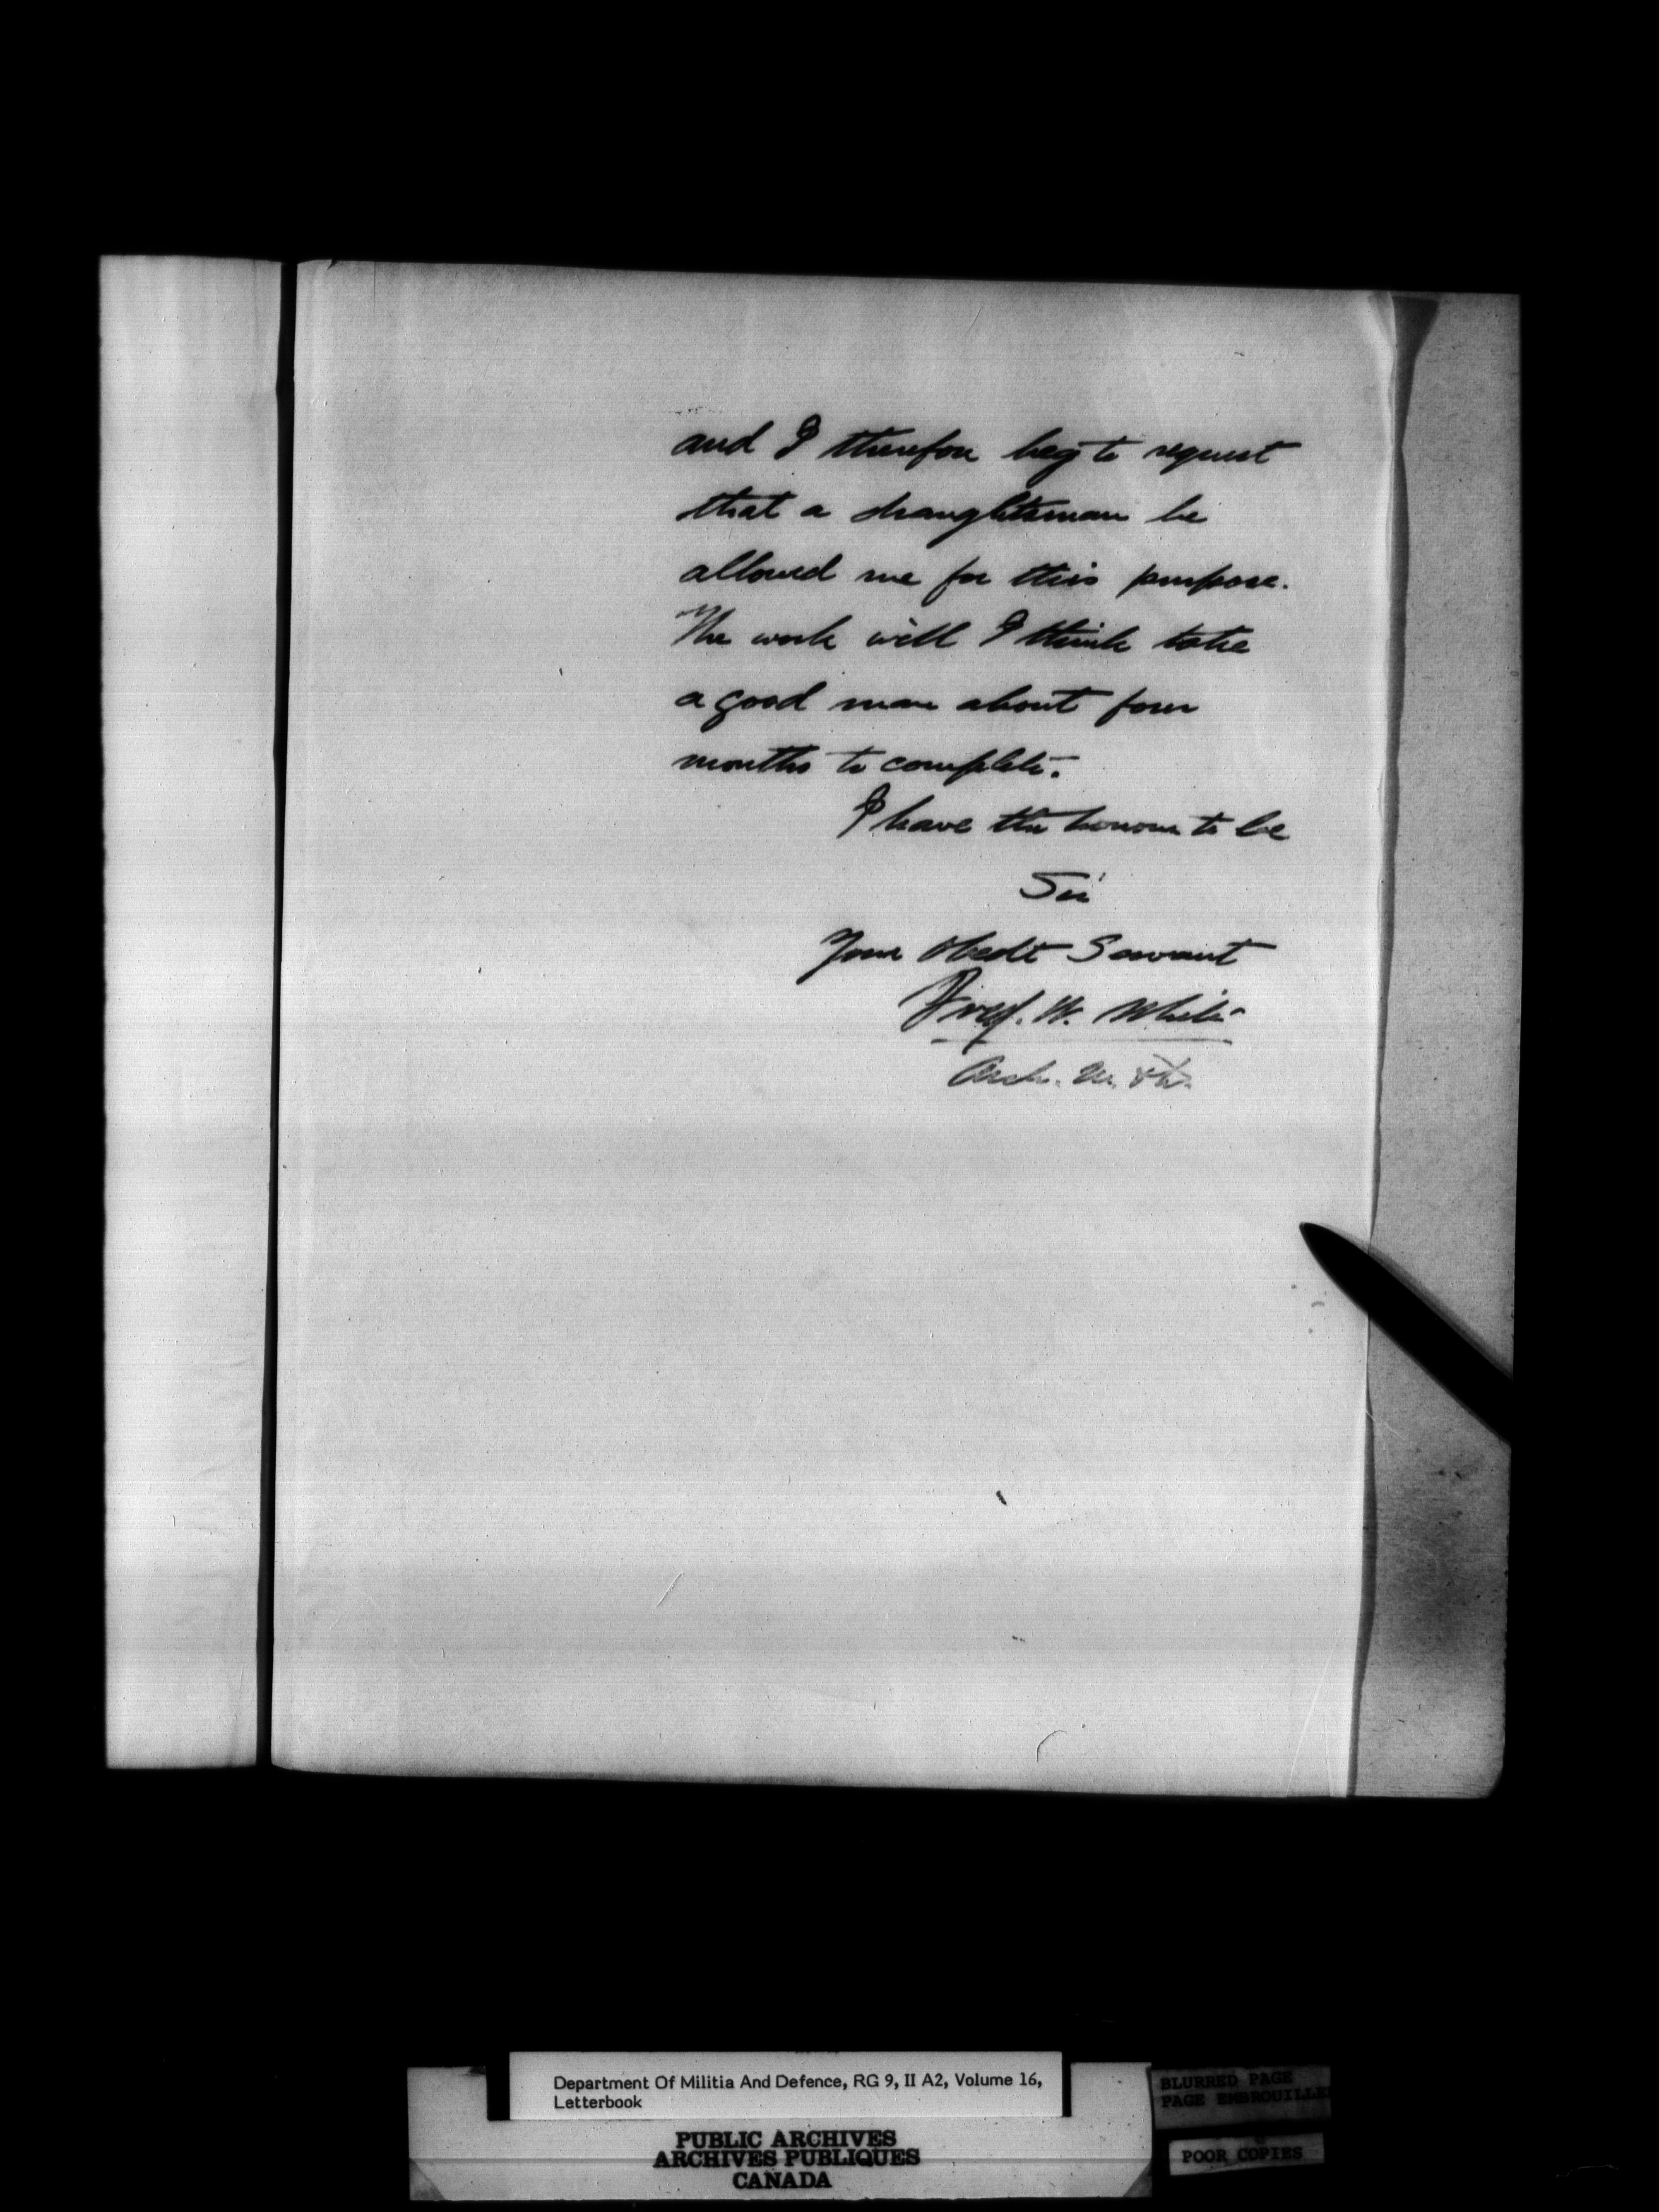 and I therefore beg to request
that a draughtsman be
allowed me for this purpose.
The work will I think take
a good man about four
months to complete.
I have the honour to be
Sir
Your Obedt Servant
Fred. W. White
Arch. M. & D.
Department Of Militia And Defence, RG 9, II A2, Volume 16,
Letterbook
PUBLIC ARCHIVES
ARCHIVES PUBLIQUES
CANADA
BLURRED PAGE
PAGE EMBROUILLE
POOR COPIES